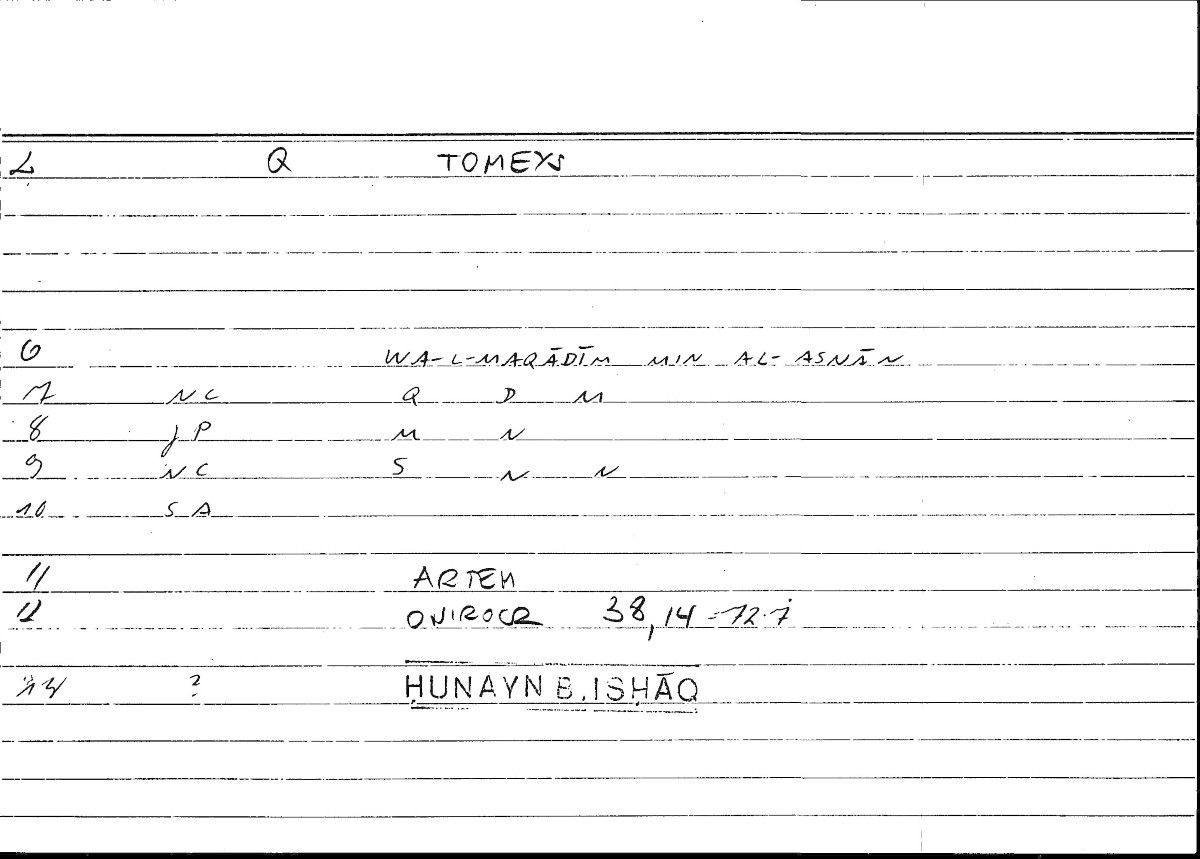 2 Q TOMEYS
6 WA-L-MAQĀDĪM MIN AL-ASNĀN
7 NC Q D M
8 JP M N
9 NC S N N
10 SA
11 ARTEM
12 ONIROCR 38,14
? ḤUNAYN B. ISḤĀQ